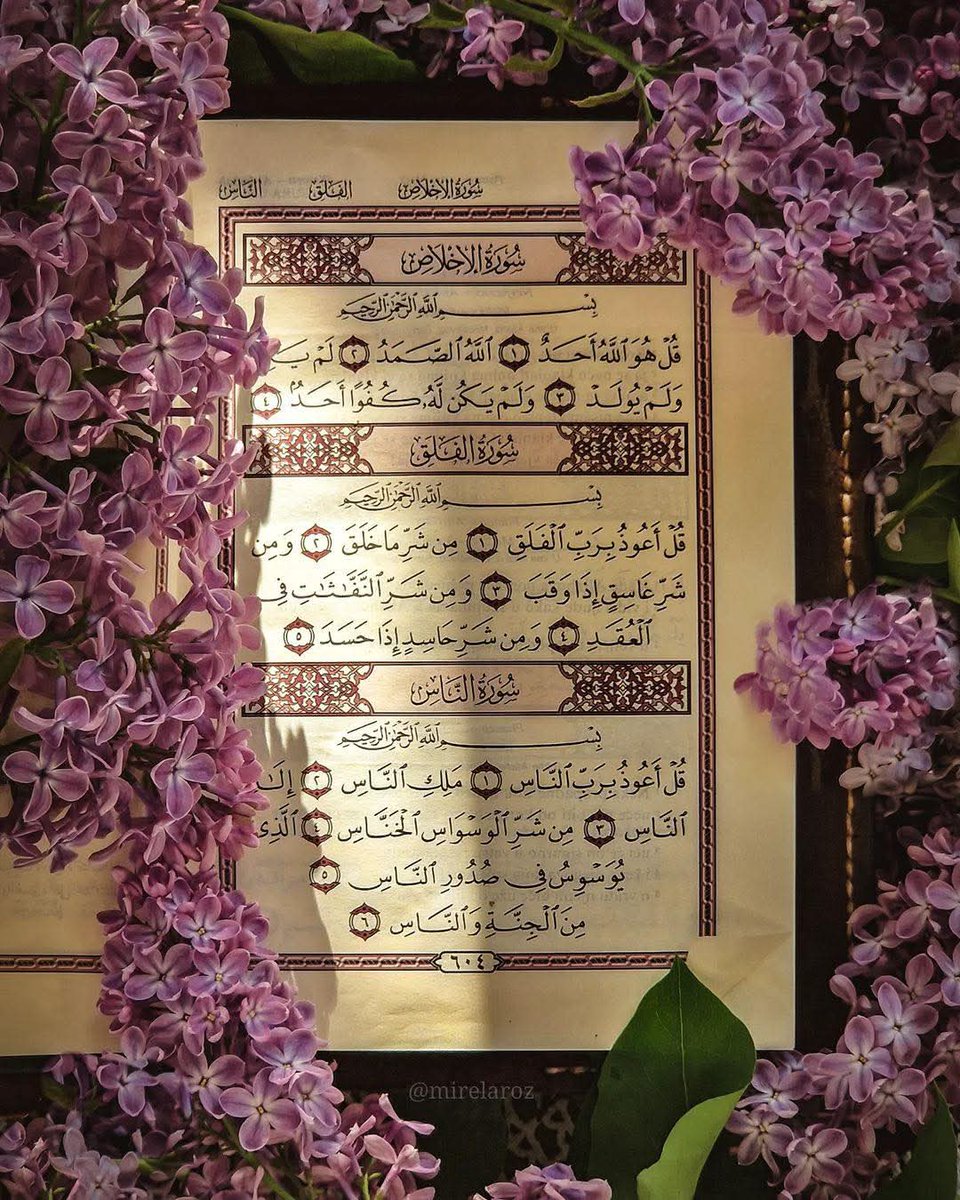 سُورَةُ الإِخْلَاصِ الفَلَق النَّاس
سُورَةُ الإِخْلَاصِ
بِسْمِ ٱللَّهِ ٱلرَّحْمَٰنِ ٱلرَّحِيمِ
قُلْ هُوَ ٱللَّهُ أَحَدٌ ١ ٱللَّهُ ٱلصَّمَدُ ٢ لَمْ يَـ
وَلَمْ يُولَدْ ٣ وَلَمْ يَكُن لَّهُۥ كُفُوًا أَحَدٌۢ ٤
سُورَةُ الفَلَقِ
بِسْمِ ٱللَّهِ ٱلرَّحْمَٰنِ ٱلرَّحِيمِ
قُلْ أَعُوذُ بِرَبِّ ٱلْفَلَقِ ١ مِن شَرِّ مَا خَلَقَ ٢ وَمِن
شَرِّ غَاسِقٍ إِذَا وَقَبَ ٣ وَمِن شَرِّ ٱلنَّفَّٰثَٰتِ فِى
ٱلْعُقَدِ ٤ وَمِن شَرِّ حَاسِدٍ إِذَا حَسَدَ ٥
سُورَةُ النَّاسِ
بِسْمِ ٱللَّهِ ٱلرَّحْمَٰنِ ٱلرَّحِيمِ
قُلْ أَعُوذُ بِرَبِّ ٱلنَّاسِ ١ مَلِكِ ٱلنَّاسِ ٢ إِلَٰهِ
ٱلنَّاسِ ٣ مِن شَرِّ ٱلْوَسْوَاسِ ٱلْخَنَّاسِ ٤ ٱلَّذِى
يُوَسْوِسُ فِى صُدُورِ ٱلنَّاسِ ٥
مِنَ ٱلْجِنَّةِ وَٱلنَّاسِ ٦
٦٠٤
@mirelaroz